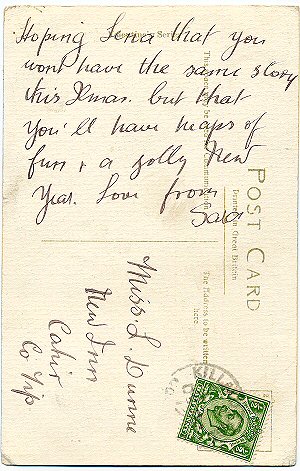 Hoping Lena that you
wont have the same story
this Xmas. but that
you'll have heaps of
fun & a jolly New
Year. Love from
POST CARD
Printed in Great Britain
The Address to be written
here.
Miss. L. Dunne
New Inn
Cahir
Co Tip